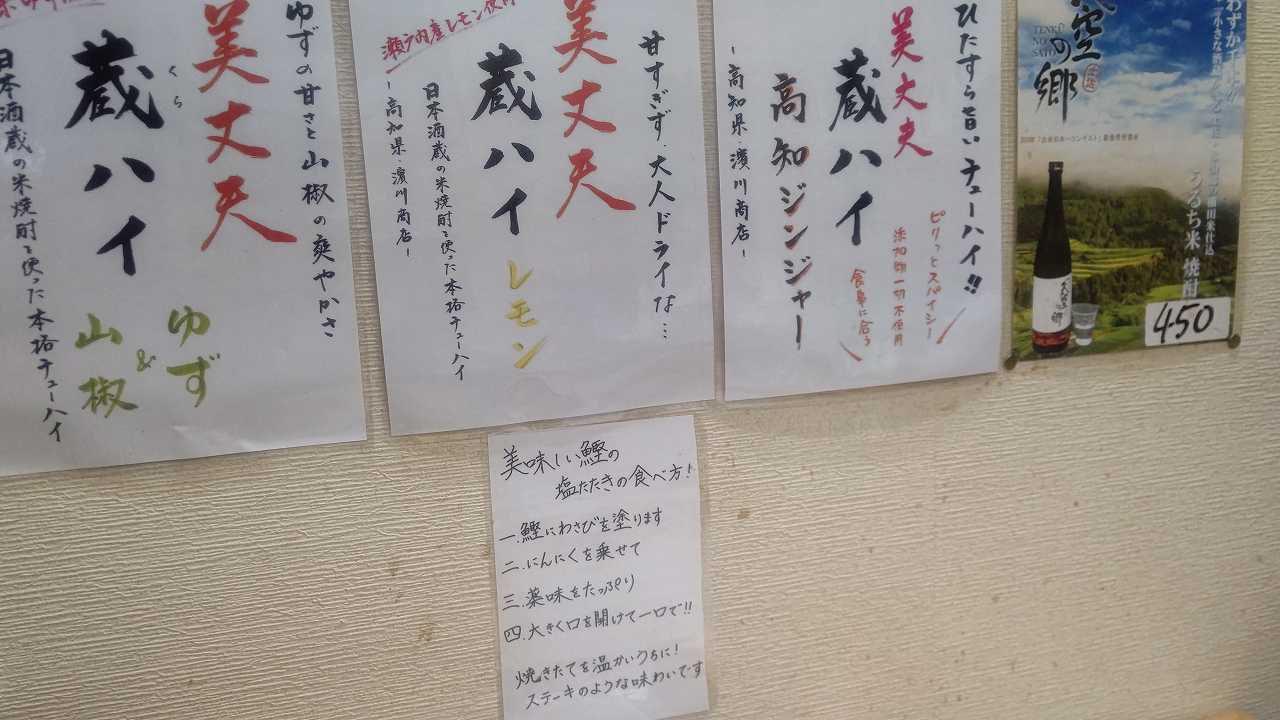 ゆずの甘さと山椒の爽やかさ
美丈夫
蔵ハイ
くら
ゆず
&
山椒
日本酒蔵の米焼酎を使った本格チューハイ
甘すぎず、大人ドライな…
美丈夫
蔵ハイ
レモン
瀬戸内産レモン使用
日本酒蔵の米焼酎を使った本格チューハイ
ー高知県・濵川商店ー
ひたすら旨いチューハイ!!
美丈夫
蔵ハイ
高知ジンジャー
ピリッとスパイシー
添加物一切不使用
食事に合う
ー高知県・濵川商店ー
空の郷
TENKU
NO
SATO
うるち米 焼酎
450
美味しい鰹の
塩たたきの食べ方!
一.鰹にわさびを塗ります
二.にんにくを乗せて
三.薬味をたっぷり
四.大きく口を開けて一口で!!
焼きたてを温かいうちに!
ステーキのような味わいです